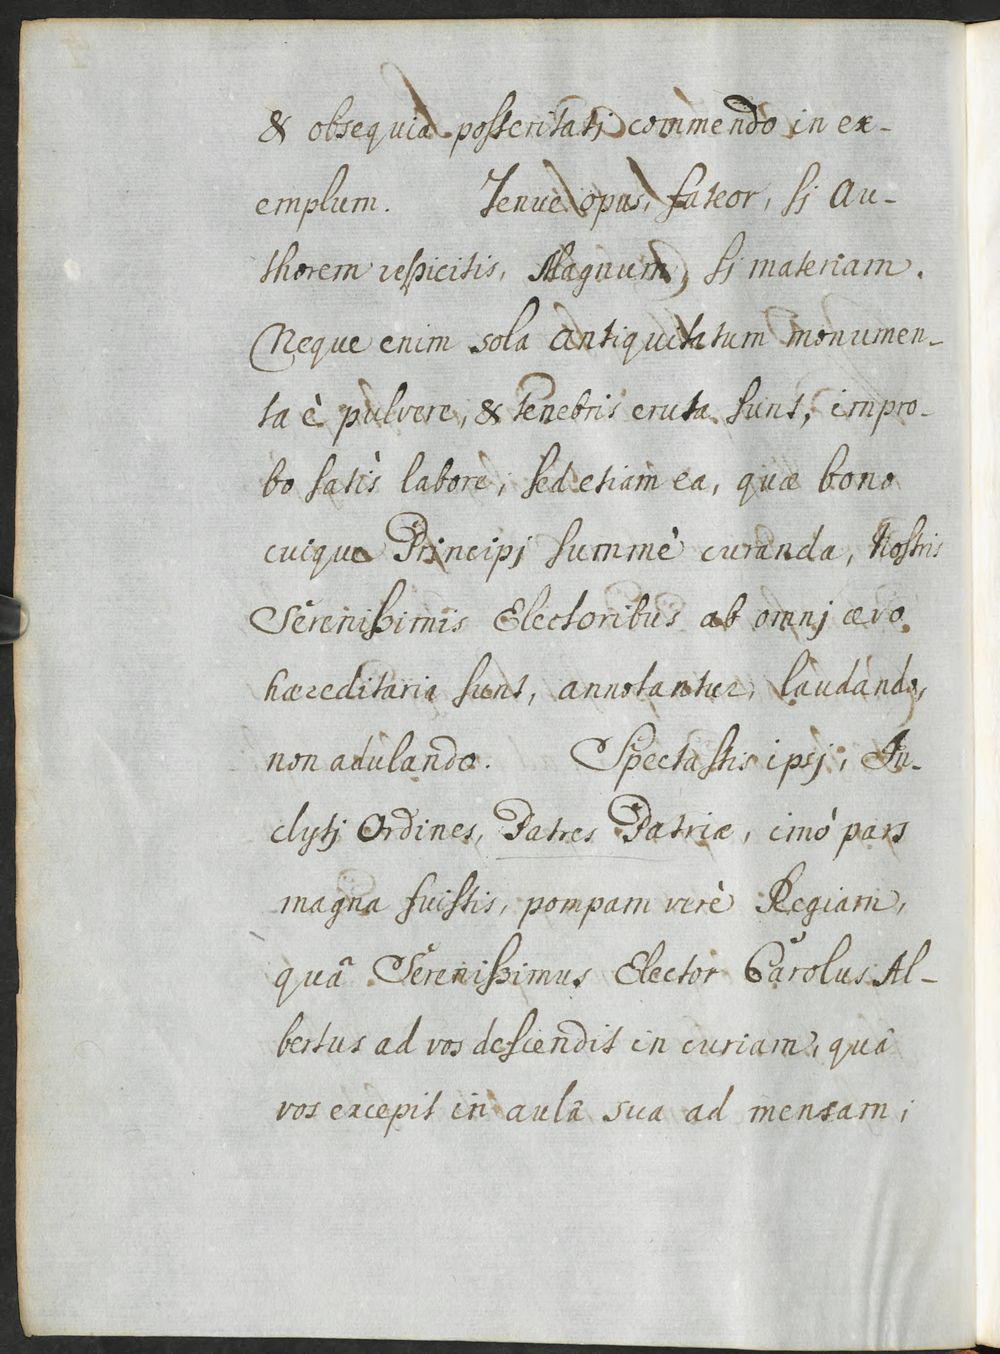 & obsequia posteritatj commendo in ex-
emplum. Tenue opus, fateor, sj Au-
thorem respicitis, Magnum, sj materiam.
Neque enim sola antiquitatum monumen-
ta è pulvere, & tenebris eruta sunt, impro-
bo satìs labore, sed etiam ea, quæ bono
cuique Principj summè curanda, Nostris
Serenißimis Electoribus ab omnj ævo
hæreditaria sunt, annotantur, laudando,
non adulando. Spectastis ipsj, In-
clytj Ordines, Patres Patriæ, imò pars
magna fuistis, pompam verè Regiam,
quâ Serenißimus Elector Carolus Al-
bertus ad vos descendit in curiam, quâ
vos excepit in aulâ sua ad mensam;